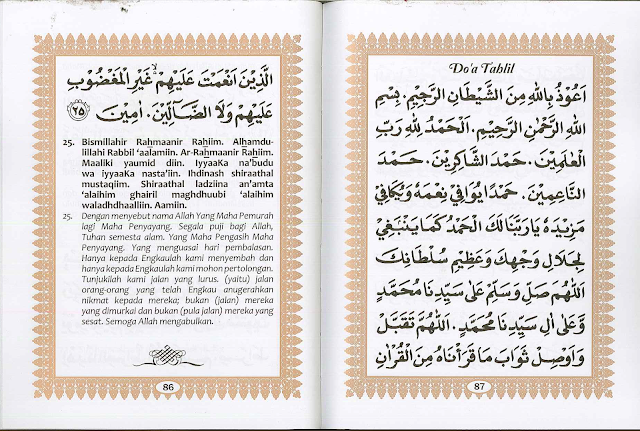 الَّذِيْنَ اَنْعَمْتَ عَلَيْهِمْ ۙ غَيْرِ الْمَغْضُوْبِ
عَلَيْهِمْ وَلاَ الضَّآلِّيْنَ. اٰمِيْنَ ﴿٢٥﴾
25. Bismillahir Raḥmaanir Raḥiim. Alḥamdu-
lillahi Rabbil ‘aalamiin. Ar-Raḥmaanir Raḥiim.
Maaliki yaumid diin. IyyaaKa na’budu
wa iyyaaKa nasta’iin. Ihdinash shiraathal
mustaqiim. Shiraathal ladziina an’amta
‘alaihim ghairil maghdhuubi ‘alaihim
waladhdhaalliin. Aamiin.
25. Dengan menyebut nama Allah Yang Maha Pemurah
lagi Maha Penyayang. Segala puji bagi Allah,
Tuhan semesta alam. Yang Maha Pengasih Maha
Penyayang. Yang menguasai hari pembalasan.
Hanya kepada Engkaulah kami menyembah dan
hanya kepada Engkaulah kami mohon pertolongan.
Tunjukilah kami jalan yang lurus. (yaitu) jalan
orang-orang yang telah Engkau anugerahkan
nikmat kepada mereka; bukan (jalan) mereka
yang dimurkai dan bukan (pula jalan) mereka yang
sesat. Semoga Allah mengabulkan.
86
Do'a Tahlil
اَعُوْذُ بِاللهِ مِنَ الشَّيْطَانِ الرَّجِيْمِ. بِسْمِ
اللهِ الرَّحْمٰنِ الرَّحِيْمِ. اَلْحَمْدُ لِلّٰهِ رَبِّ
الْعٰلَمِيْنَ. حَمْدَ الشَّاكِرِيْنَ. حَمْدَ
النَّاعِمِيْنَ. حَمْدًا يُوَافِيْ نِعَمَهُ وَيُكَافِئُ
مَزِيْدَهُ يَارَبَّنَا لَكَ الْحَمْدُ كَمَا يَنْبَغِيْ
لِجَلَالِ وَجْهِكَ وَعَظِيْمِ سُلْطَانِكَ
اَللّٰهُمَّ صَلِّ وَسَلِّمْ عَلٰى سَيِّدِنَا مُحَمَّدٍ
وَّعَلٰى اٰلِ سَيِّدِنَا مُحَمَّدٍ. اَللّٰهُمَّ تَقَبَّلْ
وَاَوْصِلْ ثَوَابَ مَا قَرَأْنَاهُ مِنَ الْقُرْاٰنِ
87